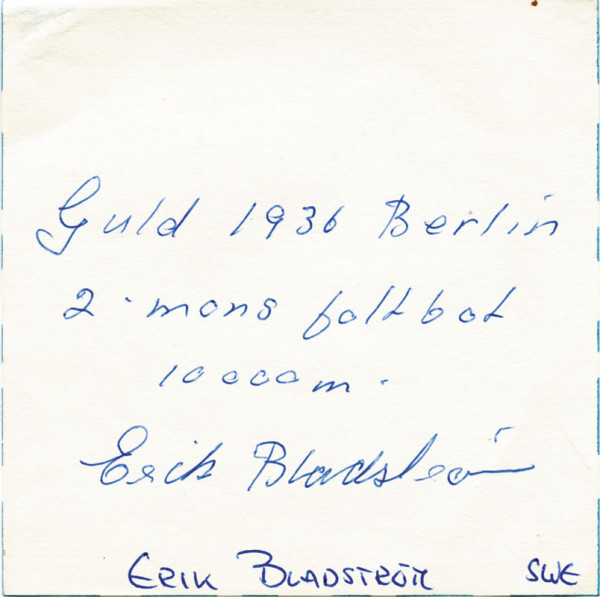 Guld 1936 Berlin
2-mans faltbot
10000m.
Erik Bladström
ERIK BLADSTRÖM SWE